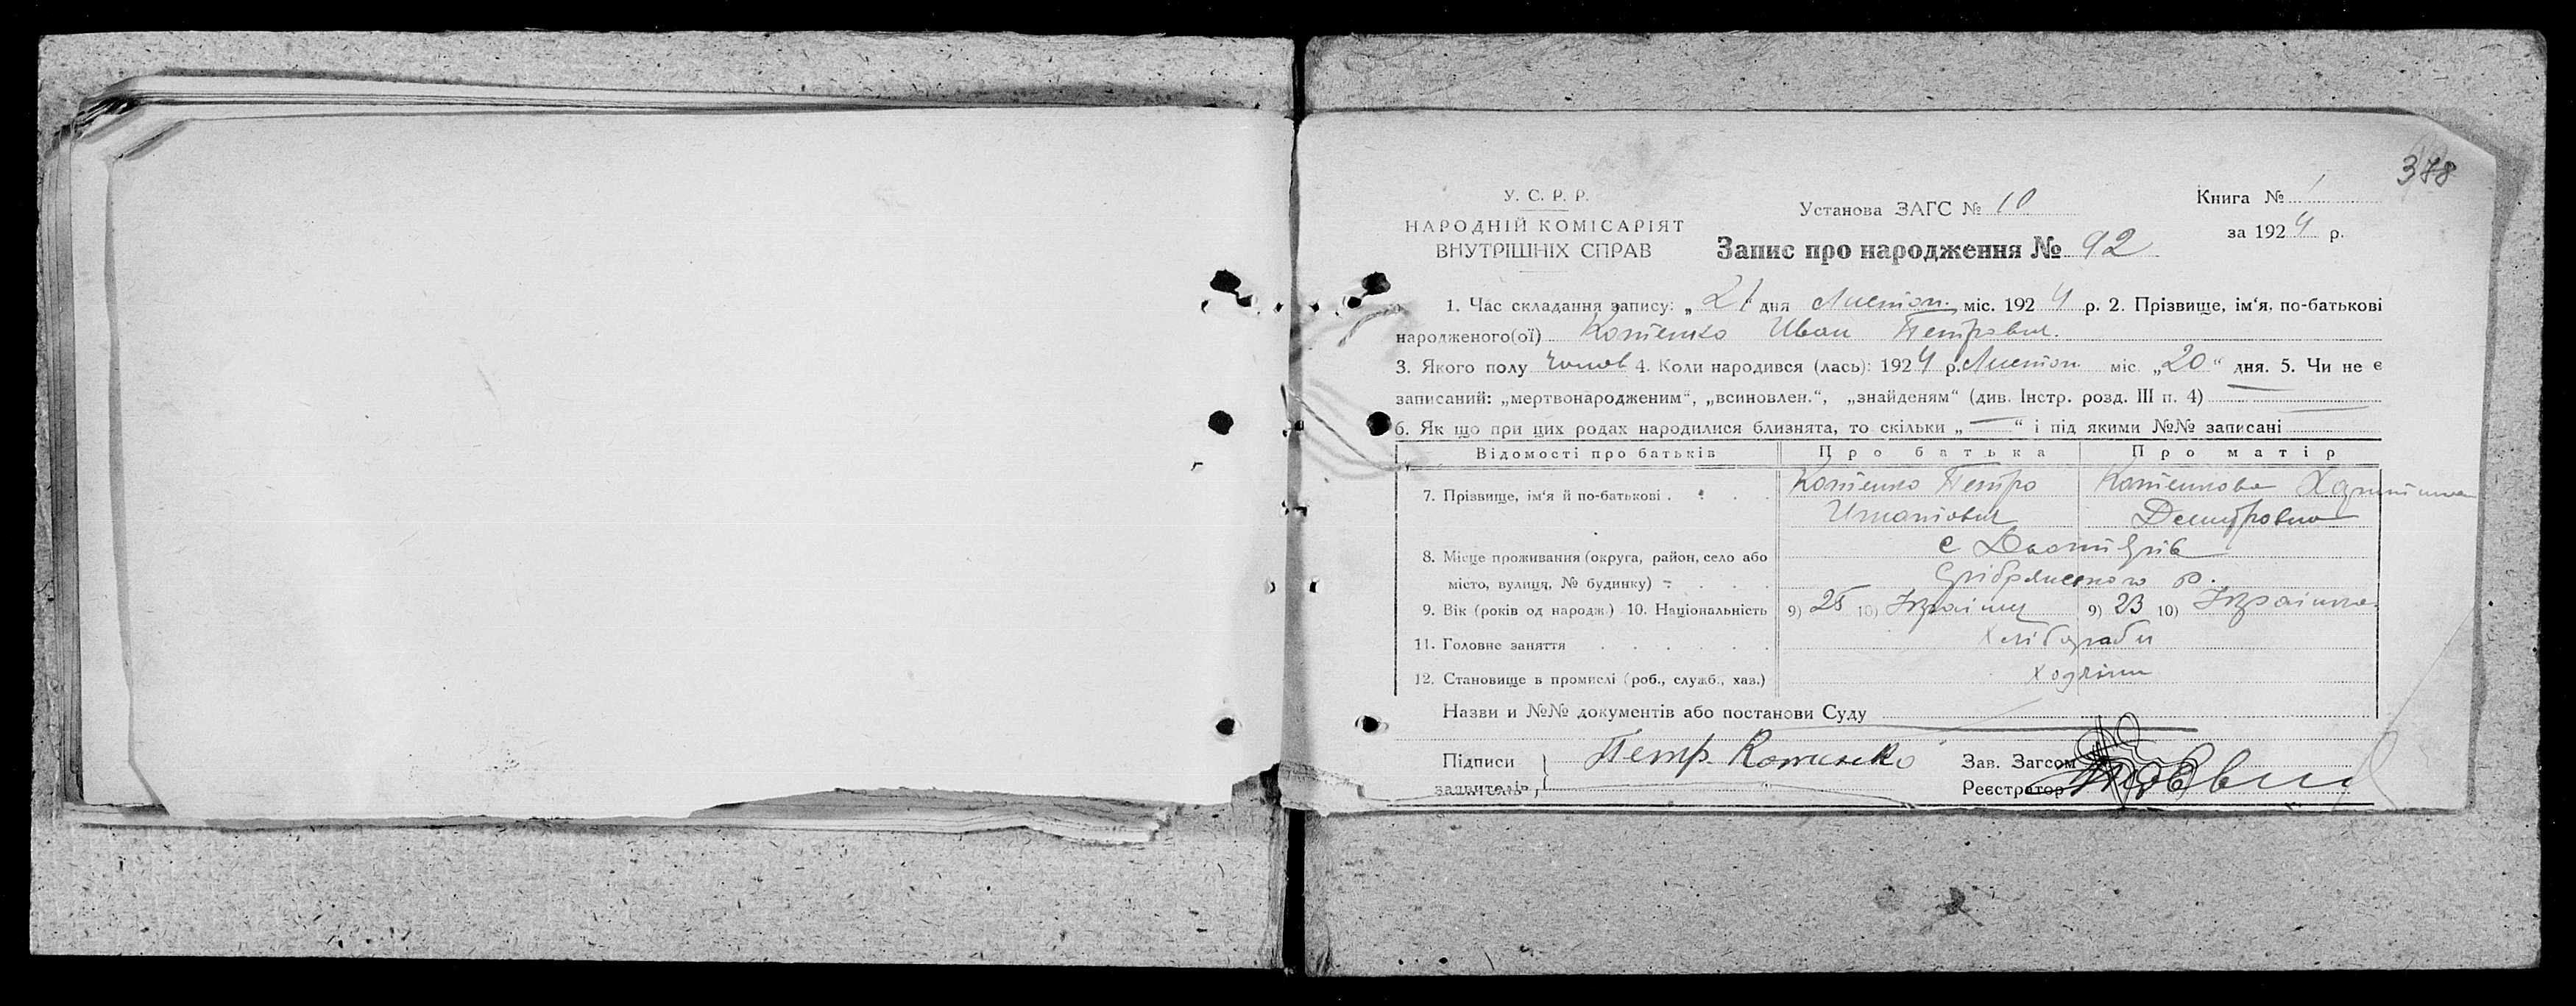 378
У. С. Р. Р.
НАРОДНІЙ КОМІСАРІЯТ
ВНУТРІШНІХ СПРАВ
Установа ЗАГС № 10
Книга № 1
за 1924 р.
Запис про народження № 92
1. Час складання запису: „ 21 дня Листоп. міс. 1924 р. 2. Прізвище, ім'я, по-батькові
народженого(ої) Котенко Иван Петрович.
3. Якого полу чолов 4. Коли народився (лась): 1924 р. Листоп. міс. „20“ дня. 5. Чи не є
записаний: „мертвонародженим“, „всиновлен.“, „знайденям“ (див. Інстр. розд. III п. 4)
6. Як що при цих родах народилися близнята, то скільки „ — “ і під якими №№ записані
Відомості про батьків Про батька Про матір
7. Прізвище, ім'я й по-батькові . . . Котенко Петро Котенкова
8. Місце проживання (округа, район, село або с
місто, вулиця, № будинку) – . . . Срібрянського р.
9. Вік (років од народж.) 10. Національність 9) 25 10) Украінец 9) 23 10) Украінка
11. Головне заняття . . . . . Хліборобы
12. Становище в промислі (роб., служб., хаз.)
Назви и №№ документів або постанови Суду
Підписи Петр. Котенко Зав. Загсом
заявителів Реєстратор